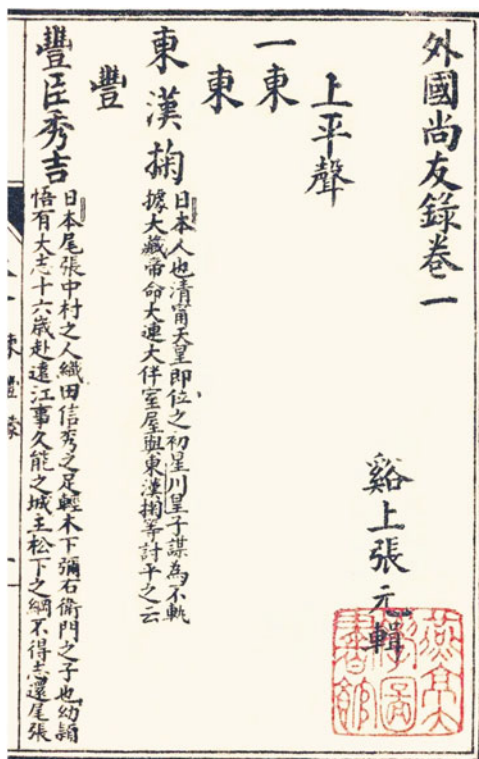 外國尚友錄卷一
谿上張元輯
上平聲
一東
東
東漢掬
日本人也清甯天皇即位之初星川皇子謀為不軌
據大藏帝命大連大伴室屋與東漢掬等討平之云
豐
豐臣秀吉
日本尾張中村之人織田信秀之足輕木下彌右衛門之子也幼穎
悟有大志十六歲赴遠江事久能之城主松下之綱不得志還尾張
燕京大
學圖
書館